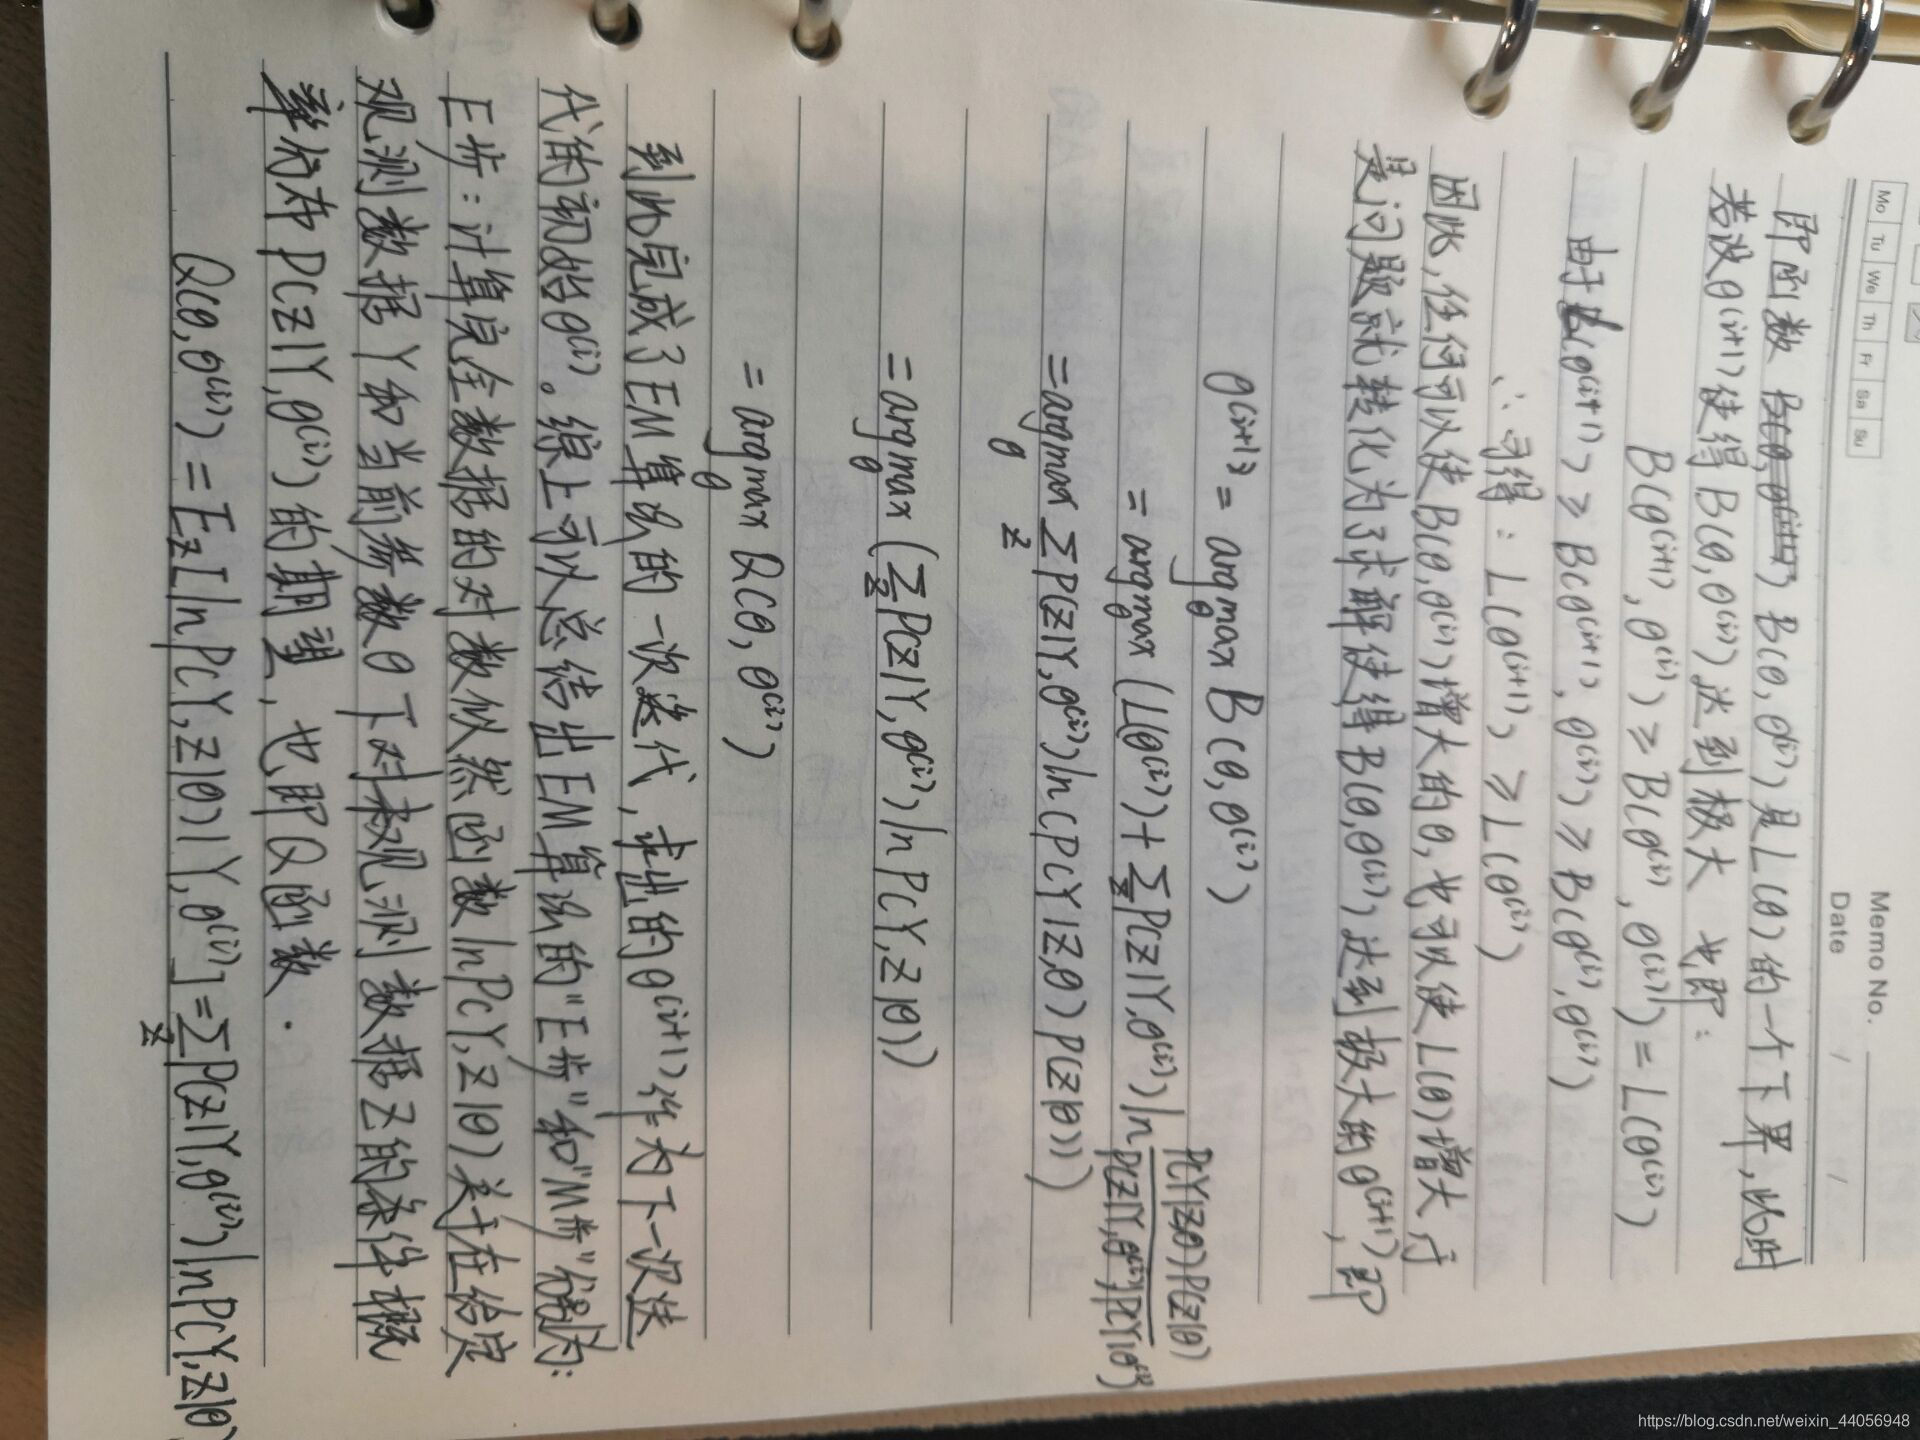 Memo No.
Mo Tu We Th Fr Sa Su
Date / /
即函数 B(θ,θ⁽ⁱ⁾)是L(θ)的一个下界,此时
若设θ⁽ⁱ⁺¹⁾使得B(θ,θ⁽ⁱ⁾)达到极大 也即:
B(θ⁽ⁱ⁺¹⁾,θ⁽ⁱ⁾) ≥ B(θ⁽ⁱ⁾,θ⁽ⁱ⁾) = L(θ⁽ⁱ⁾)
由于L(θ⁽ⁱ⁺¹⁾) ≥ B(θ⁽ⁱ⁺¹⁾,θ⁽ⁱ⁾) ≥ B(θ⁽ⁱ⁾,θ⁽ⁱ⁾)
∴可得: L(θ⁽ⁱ⁺¹⁾) ≥ L(θ⁽ⁱ⁾)
因此,任何可以使B(θ,θ⁽ⁱ⁾)增大的θ,也可以使L(θ)增大,于
是问题就转化为了求解使得B(θ,θ⁽ⁱ⁾)达到极大的θ⁽ⁱ⁺¹⁾,即
θ⁽ⁱ⁺¹⁾ = argmax_θ B(θ,θ⁽ⁱ⁾)
= argmax_θ (L(θ⁽ⁱ⁾) + Σ_Z P(Z|Y,θ⁽ⁱ⁾) ln P(Y|Z,θ)P(Z|θ) / P(Z|Y,θ⁽ⁱ⁾)P(Y|θ⁽ⁱ⁾)
= argmax_θ Σ_Z P(Z|Y,θ⁽ⁱ⁾) ln(P(Y|Z,θ)P(Z|θ)))
= argmax_θ (Σ_Z P(Z|Y,θ⁽ⁱ⁾) ln P(Y,Z|θ))
= argmax_θ Q(θ,θ⁽ⁱ⁾)
到此完成了EM算法的一次迭代,求出的θ⁽ⁱ⁺¹⁾作为下一次迭
代的初始θ⁽ⁱ⁾。综上可以总结出EM算法的"E步"和"M步"分别为:
E步:计算完全数据的对数似然函数lnP(Y,Z|θ)关于在给定
观测数据Y和当前参数θ下对未观测数据Z的条件概
率分布P(Z|Y,θ⁽ⁱ⁾)的期望,也即Q函数.
Q(θ,θ⁽ⁱ⁾) = E_Z[lnP(Y,Z|θ)|Y,θ⁽ⁱ⁾] = Σ_Z P(Z|Y,θ⁽ⁱ⁾) lnP(Y,Z|θ)
https://blog.csdn.net/weixin_44056948